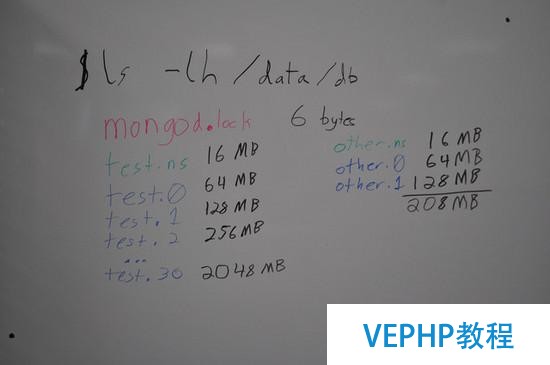 $ ls -lh /data/db
mongod.lock 6 bytes
test.ns 16 MB
test.0 64 MB
test.1 128 MB
test.2 256 MB
...
test.30 2048 MB
other.ns 16 MB
other.0 64 MB
other.1 128 MB
208 MB
VEPHP教程